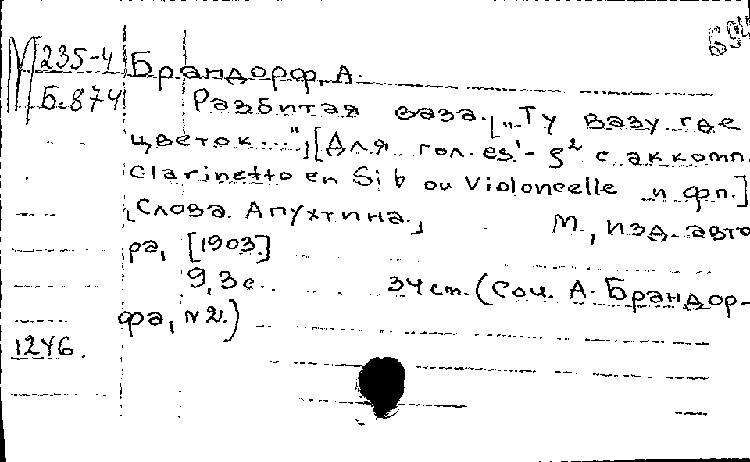 М 235-4
Б.874
Брандорф, А.
Разбитая ваза. [„Ту вазу где
цветок...", [Для гол. es¹-g² с аккомп.
Clarinetto en Si b ou Violoncelle и фп.]
[Слова. Апухтина.]
М., изд. авто
ра, [1903.]
9, 3 с. 34 cm. (Соч. А. Брандор-
фа, N 2.)
1246.